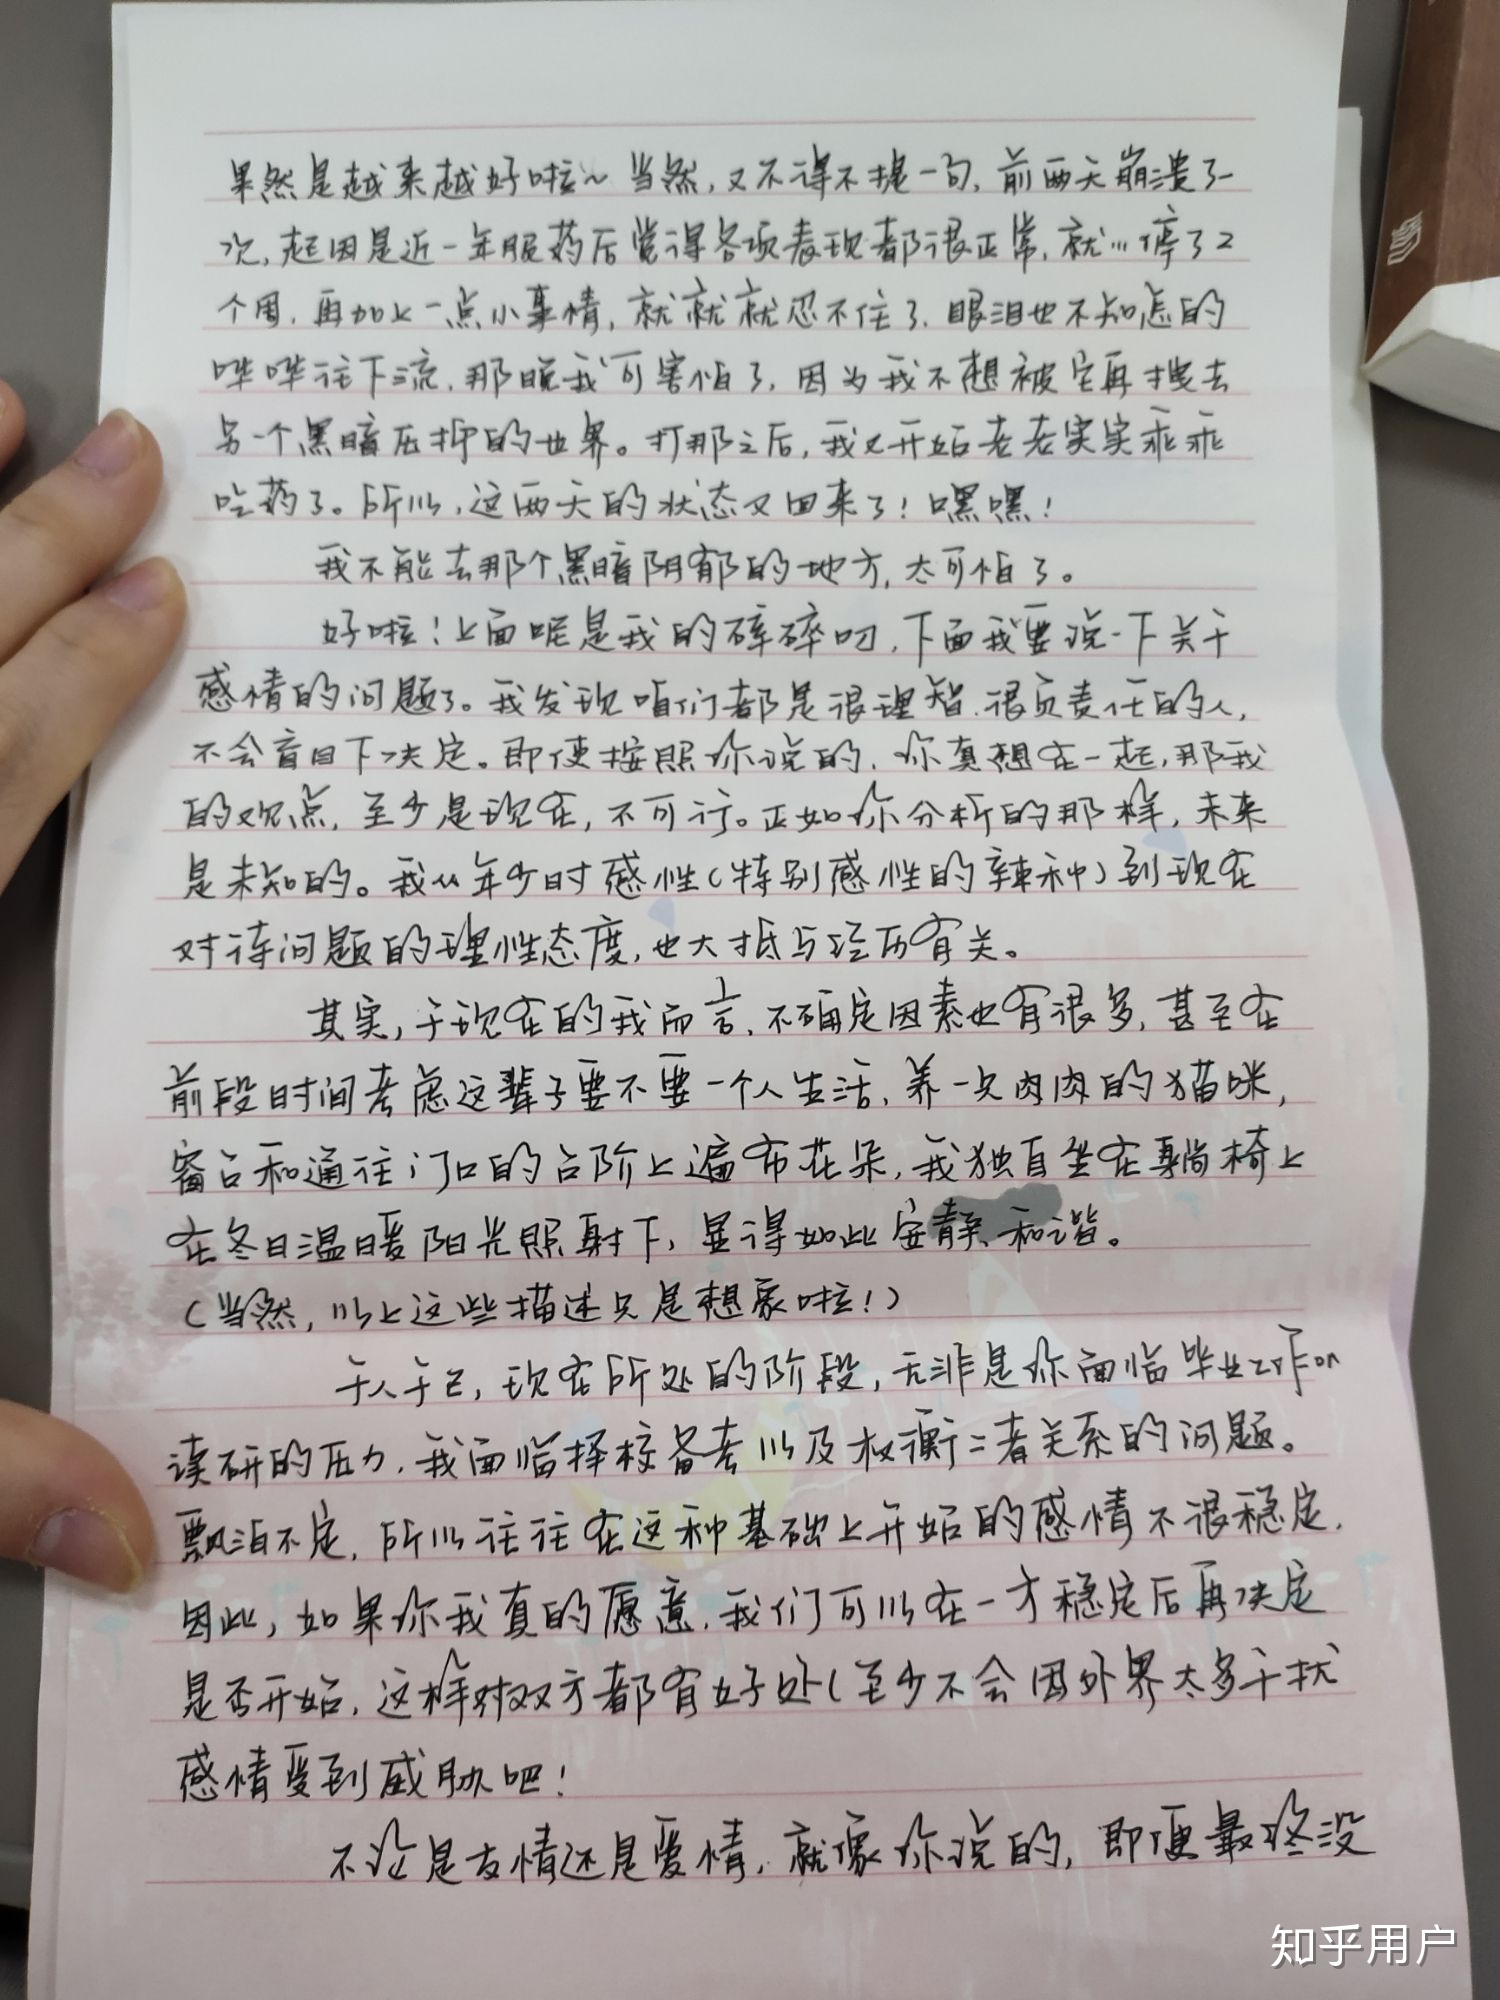 果然是越来越好啦～当然,又不得不提一句,前两天崩溃了一
次,起因是近一年服药后觉得各项表现都很正常,就…停了2
个周,再加上一点小事情,就就就忍不住了,眼泪也不知怎的
哗哗往下流,那晚我可害怕了,因为我不想被它再拽去
另一个黑暗压抑的世界。打那之后,我又开始老老实实乖乖
吃药了。所以,这两天的状态又回来了!嘿嘿!
我不能去那个黑暗阴郁的地方,太可怕了。
好啦!上面呢是我的碎碎叨,下面我要说一下关于
感情的问题了。我发现咱们都是很理智、很负责任的人,
不会盲目下决定。即使按照你说的,你真想在一起,那我
的观点,至少是现在,不可行。正如你分析的那样,未来
是未知的。我从年少时感性(特别感性的那种)到现在
对待问题的理性态度,也大抵与经历有关。
其实,于现在的我而言,不确定因素也有很多,甚至在
前段时间考虑这辈子要不要一个人生活,养一只肉肉的猫咪,
窗台和通往门口的台阶上遍布花朵,我独自坐在躺椅上
在冬日温暖阳光照射下,显得如此安静、和谐。
(当然,以上这些描述只是想象啦!)
于人于己,现在所处的阶段,无非是你面临毕业工作or
读研的压力,我面临择校备考以及权衡二者关系的问题。
飘泊不定,所以往往在这种基础上开始的感情不很稳定,
因此,如果你我真的愿意,我们可以在一方稳定后再决定
是否开始,这样对双方都有好处(至少不会因外界太多干扰
感情受到威胁吧!
不论是友情还是爱情,就像你说的,即便最终没
知乎用户